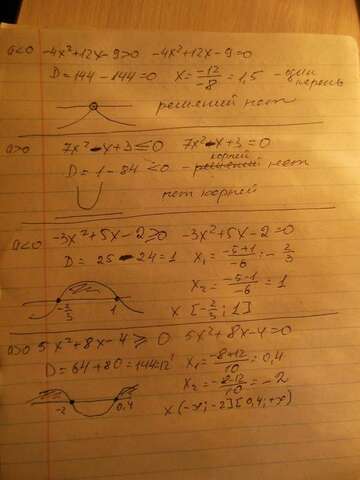 a<0 -4x²+12x-9>0 -4x²+12x-9=0
D=144-144=0 x=-12/-8=1,5 - один корень
решений нет
a>0 7x²-x+3≤0 7x²-x+3=0
D=1-84<0 - корней нет
нет корней
a<0 -3x²+5x-2≥0 -3x²+5x-2=0
D=25-24=1 x₁=-5+1/-6=-2/3
x₂=-5-1/-6=1
-2/3 1
x [-2/3; 1]
a>0 5x²+8x-4≥0 5x²+8x-4=0
D=64+80=144=12² x₁=-8+12/10=0,4
x₂=-8-12/10=-2
-2 0,4
x (-∞; -2] [0,4; +∞)